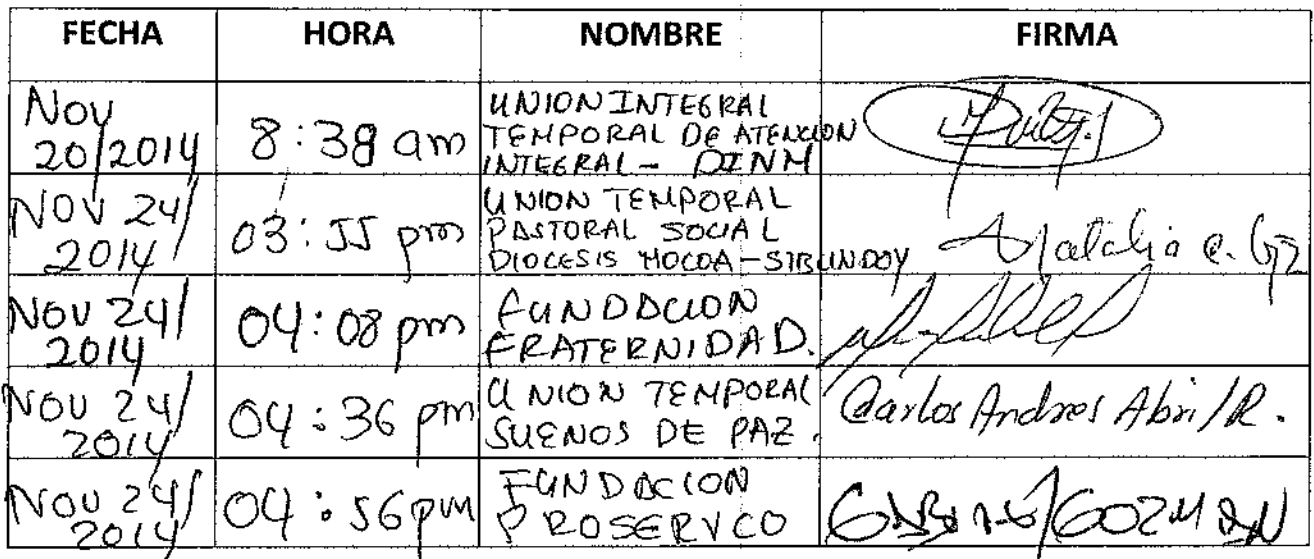 FECHA HORA NOMBRE FIRMA
Nov
20/2014
8:38 am
UNION INTEGRAL
TEMPORAL DE ATENCION
INTEGRAL - DINM
NOV 24/
2014
03:55 pm
UNION TEMPORAL
PASTORAL SOCIAL
DIOCESIS MOCOA-SIBUNDOY
Natalia e.
Nov 24/
2014
04:08 pm
FUNDACION
FRATERNIDAD.
Nov 24/
2014
04:36 pm
UNION TEMPORAL
SUENOS DE PAZ.
Carlos Andres Abril R.
Nov 24/
2014
04:56 pm
FUNDACION
PROSERVCO
GOZMAN